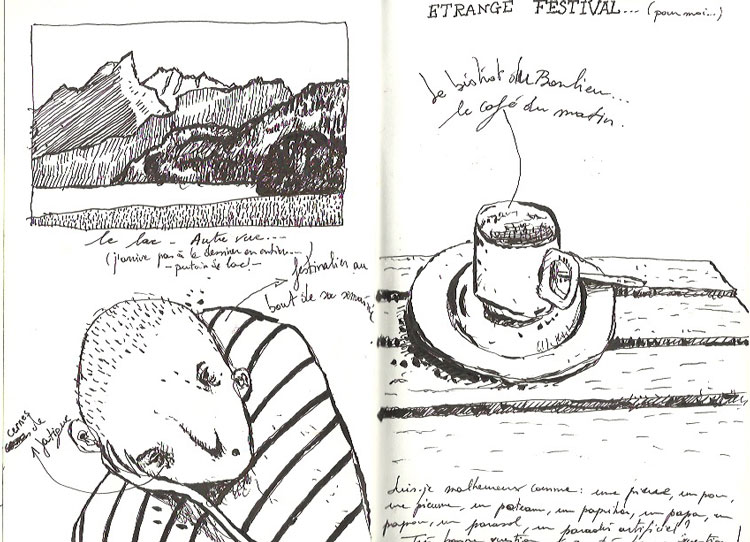 le lac - Autre vue....
(j'arrive pas à le dessiner en entier...
- putain de lac! -
festivalier au
bout de sa semaine
cernes
de
fatigue
ETRANGE FESTIVAL... (pour moi...)
Le bistrot du Bonlieu...
le café du matin.
Suis-je malheureux comme : une pierre, un pou,
une pieuvre, un poteau, un papillon, un papa, un
papou, un parasol, un paradis artificiel?
Très bonne question